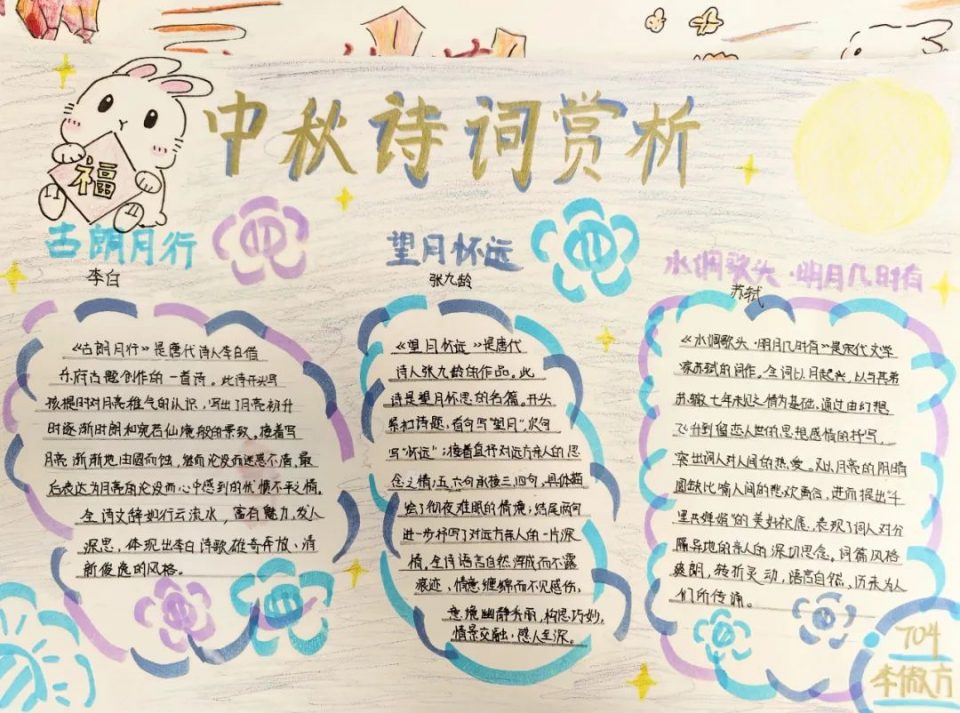 中秋诗词赏析
福
古朗月行
李白
《古朗月行》是唐代诗人李白借
乐府古题创作的一首诗。此诗开头写
孩提时对月亮稚气的认识,写出了月亮初升
时逐渐明朗和宛若仙境般的景致。接着写
月亮渐渐地由圆而蚀,继而沦没而迷惑不清,最
后表达为月亮的沦没而心中感到的忧愤不平之情。
全诗文辞如行云流水,富有魅力,发人
深思,体现出李白诗歌雄奇奔放、清
新俊逸的风格。
望月怀远
张九龄
《望月怀远》是唐代
诗人张九龄的作品。此
诗是望月怀思的名篇。开头
紧扣诗题,首句写"望月",次句
写"怀远";接着直抒对远方亲人的思
念之情;五六句承接三四句,具体描
绘了彻夜难眠的情境;结尾两句
进一步抒写了对远方亲人的一片深
情。全诗语言自然浑成而不露
痕迹,情意缠绵而不见感伤,
意境幽静秀丽,构思巧妙,
情景交融,感人至深。
水调歌头·明月几时有
苏轼
《水调歌头·明月几时有》是宋代文学
家苏轼的词作。全词以月起兴,以与其弟
苏辙七年未见之情为基础,通过由幻想
飞升到留恋人世的思想感情的抒写,
突出词人对人间的热爱。又以月亮的阴晴
圆缺比喻人间的悲欢离合,进而提出"千
里共婵娟"的美好祝愿,表现了词人对分
隔异地的亲人的深切思念。词篇风格
爽朗,转折灵动,语言自然,历来为人
们所传诵。
704
李倣方